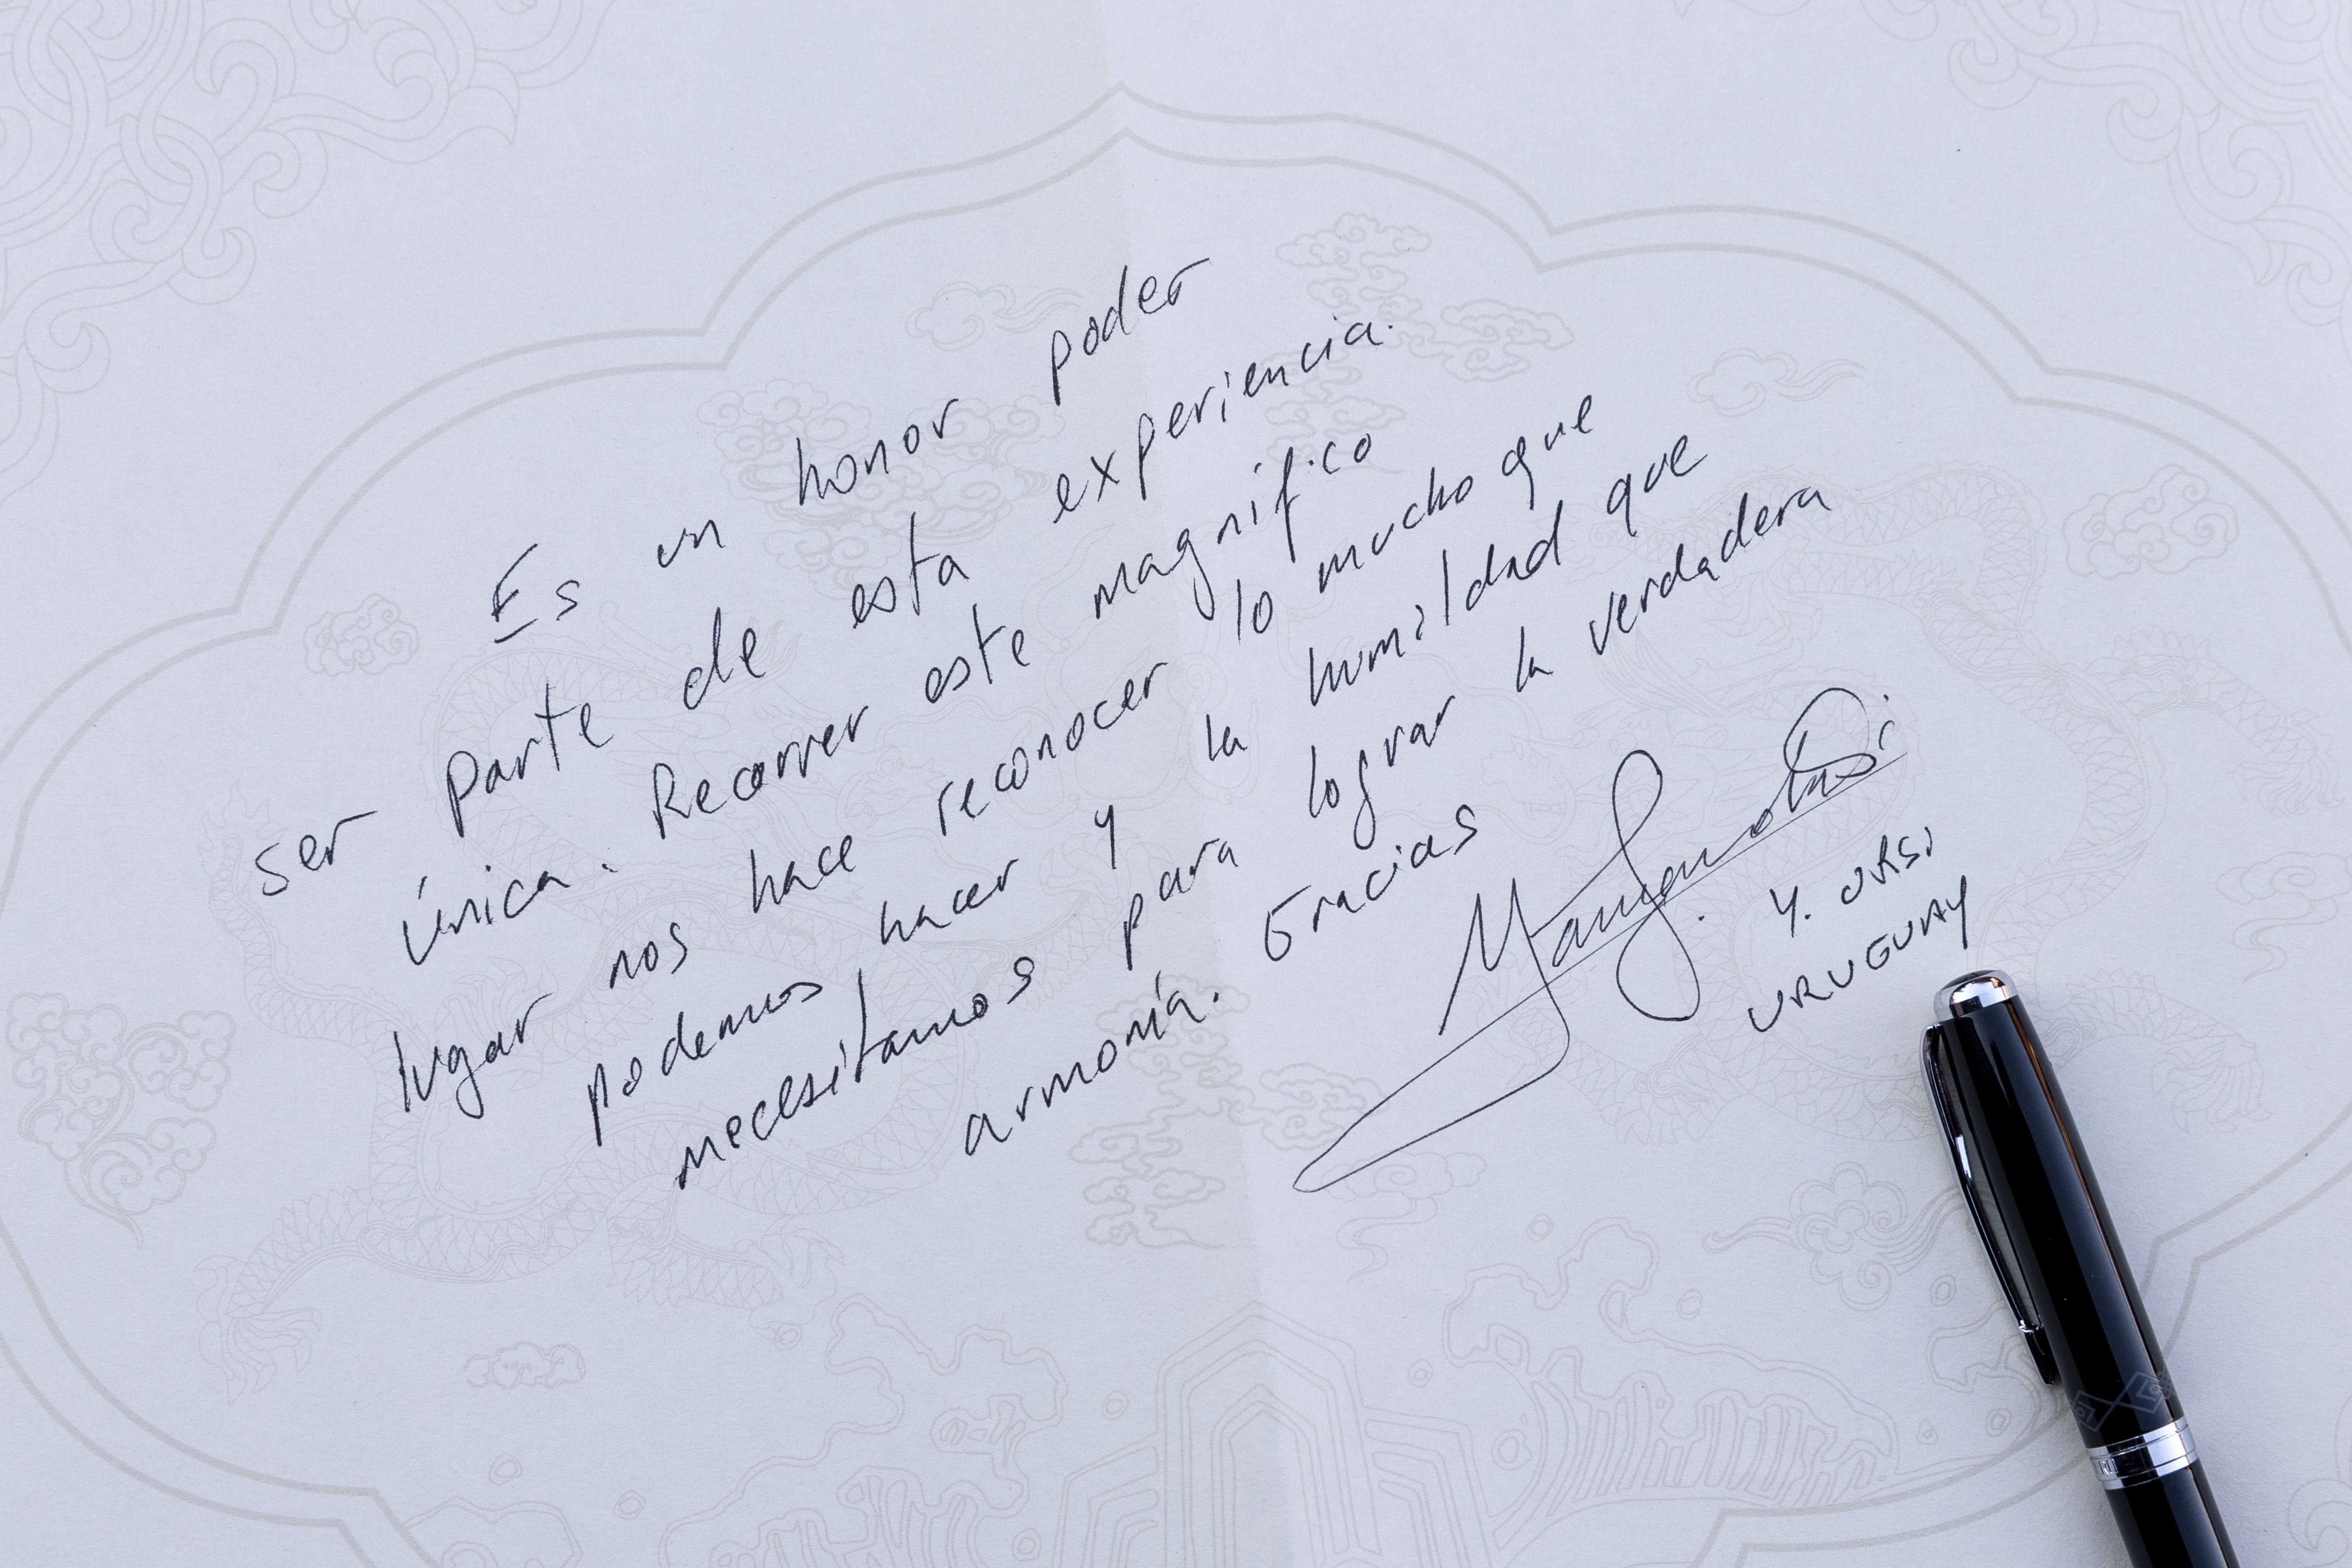 Es un honor poder
ser parte de esta experiencia.
única. Recorrer este magnifico
lugar nos hace reconocer lo mucho que
podemos hacer y la humildad que
necesitamos para lograr la verdadera
armonía. Gracias
Y. ORSI
URUGUAY